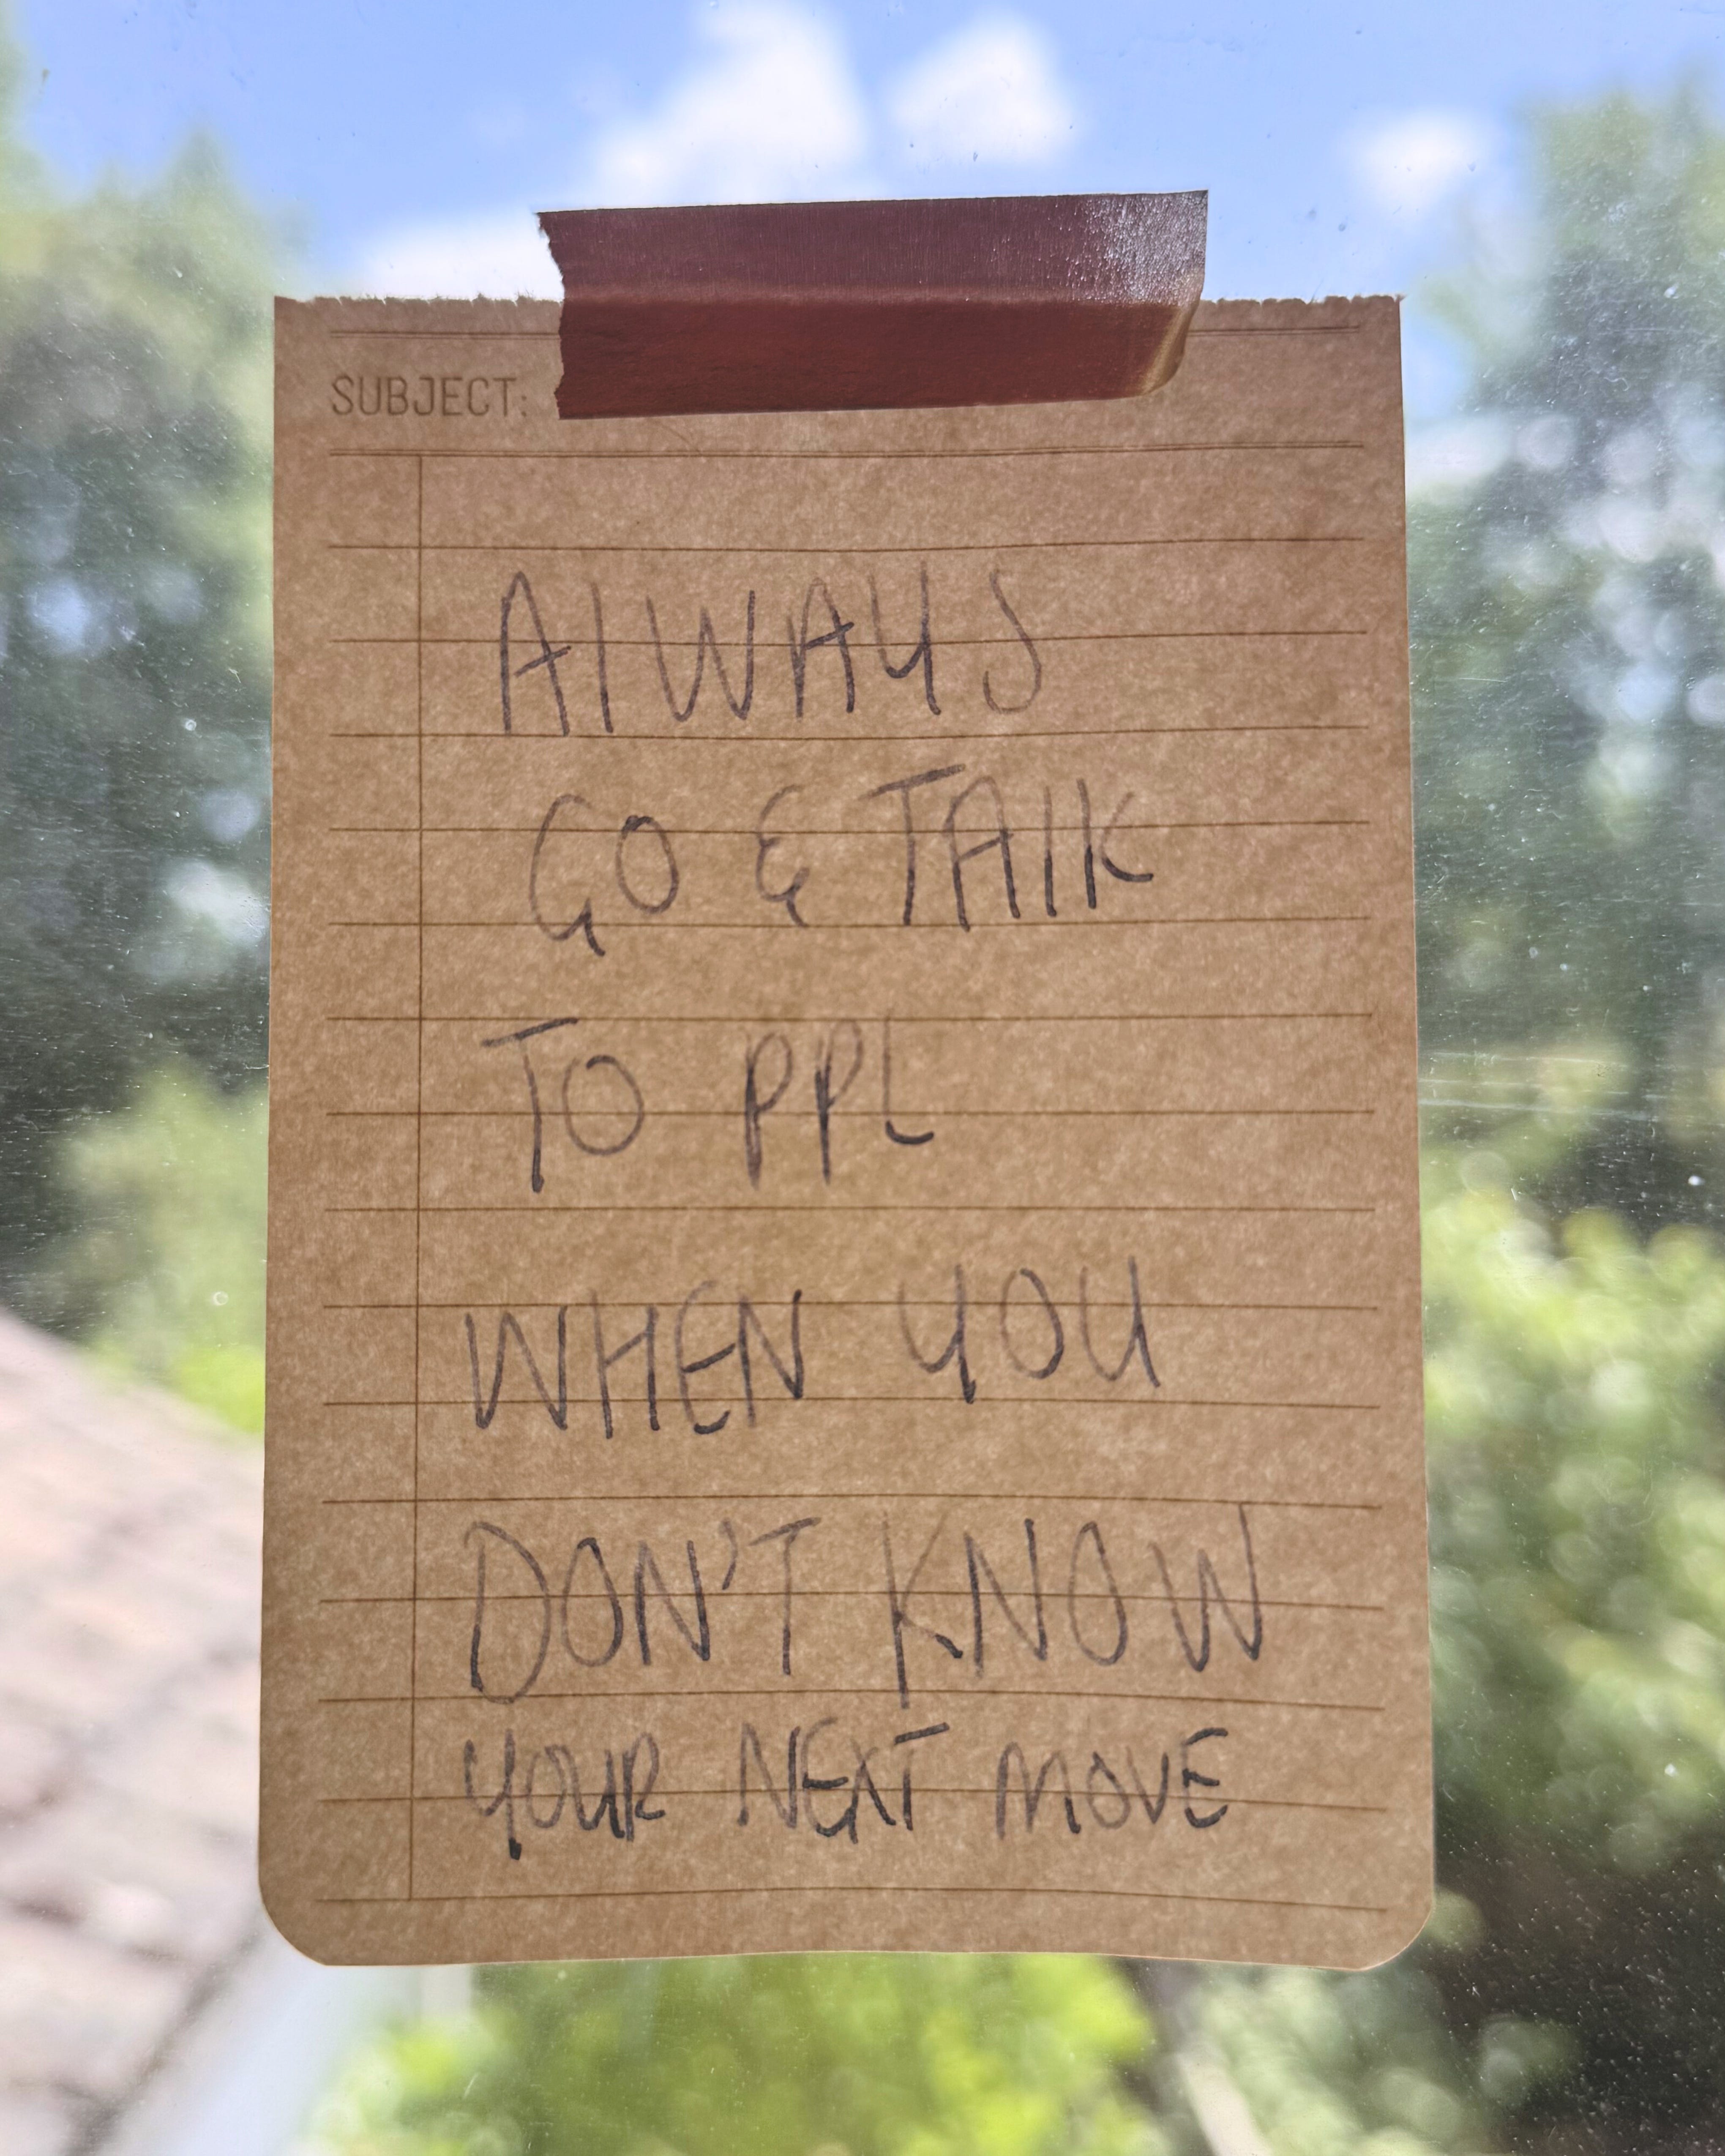 SUBJECT:
AlWAYS
GO & TAlK
TO PPL
WHEN YOU
DON'T KNOW
YOUR NEXT MOVE